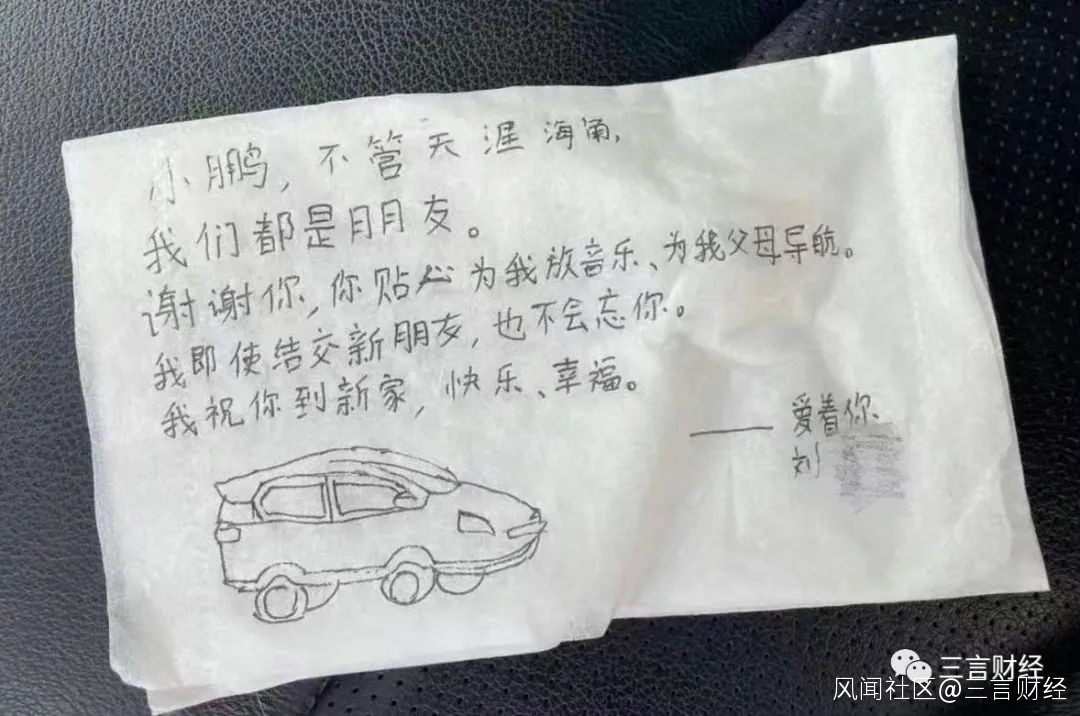 小鹏，不管天涯海角，
我们都是朋友。
谢谢你，你贴心为我放音乐、为我父母导航。
我即使结交新朋友，也不会忘你。
我祝你到新家，快乐、幸福。
——爱着你
刘
三言财经
风闻社区@三言财经